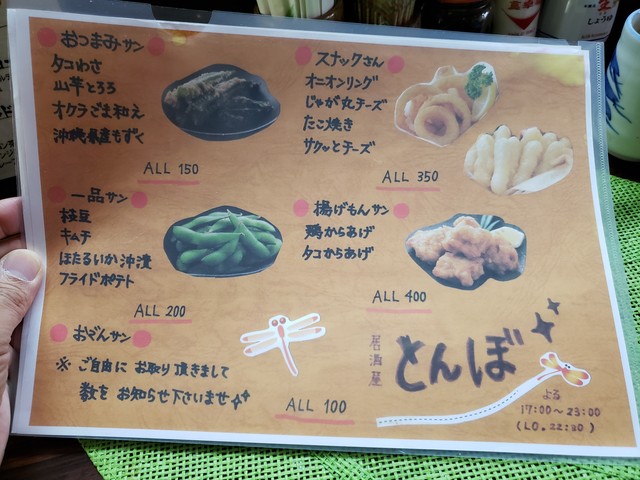 おつまみサン
タコわさ
山芋とろろ
オクラごま和え
沖縄県産もずく
ALL 150
スナックさん
オニオンリング
じゃが丸チーズ
たこ焼き
サクッとチーズ
ALL 350
一品サン
枝豆
キムチ
ほたるいか沖漬
フライドポテト
ALL 200
揚げもんサン
鶏からあげ
タコからあげ
ALL 400
おでんサン
※ ご自由に お取り頂きまして
数を お知らせ下さいませ
ALL 100
居酒屋
とんぼ
よる
17:00〜23:00
(LO. 22:30)